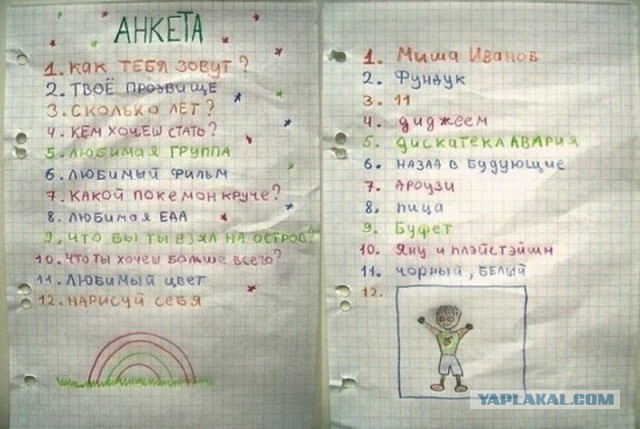 АНКЕТА
1. КАК ТЕБЯ ЗОВУТ?
2. ТВОЁ ПРОЗВИЩЕ
3. СКОЛЬКО ЛЕТ?
4. КЕМ ХОЧЕШ СТАТЬ?
5. ЛЮБИМАЯ ГРУППА
6. ЛЮБИМЫЙ ФИЛЬМ
7. КАКОЙ ПОКЕМОН КРУЧЕ?
8. ЛЮБИМАЯ ЕДА
9. ЧТО БЫ ТЫ ВЗЯЛ НА ОСТРОВ?
10. ЧТО ТЫ ХОЧЕШ БОЛЬШЕ ВСЕГО?
11. ЛЮБИМЫЙ ЦВЕТ
12. НАРИСУЙ СЕБЯ
1. Миша Иванов
2. Фундук
3. 11
4. диджеем
5. дискатека АВАРИЯ
6. НАЗАД В будующие
7. ДРОУЗИ
8. пица
9. Буфет
10. Яну и плэйстэйшн
11. чорный, БЕЛЫЙ
12.
YAPLAKAL.COM